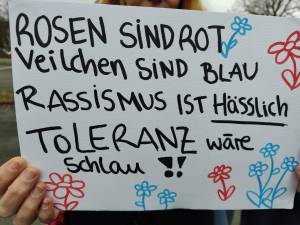 ROSEN SIND ROT
Veilchen SIND BLAU
RASSISMUS IST Hässlich
TOLERANZ wäre
schlau !!